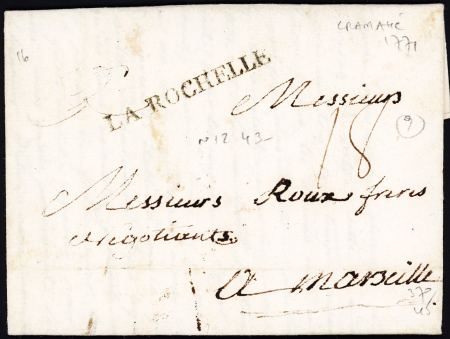 16
CRAMAHÉ
1771
LA ROCHELLE
Messieurs
18
9
N 12 43
Messieurs Roux freres
et negotiants
a marseille
370
45